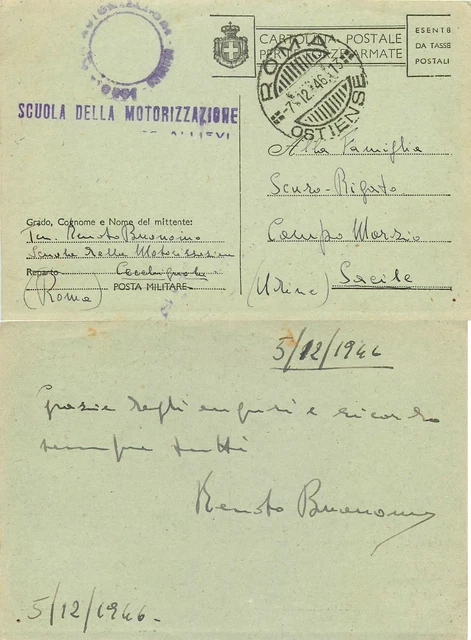 CARTOLINA POSTALE
PER FORZE ARMATE
ESENTE
DA TASSE
POSTALI
ROMA
-7·12·46·13
OSTIENSE
SCUOLA DELLA MOTORIZZAZIONE
Alla Famiglia
Scuro-Rigato
Campo Marzio
(Udine) Sacile
Grado, Cognome e Nome del mittente:
Ten. Renato Buonomo
Scuola della Motorizzazione
Reparto Cecchignola
(Roma) POSTA MILITARE
5/12/1946
Grazie degli auguri e ricordo
sempre tutti
Renato Buonomo
5/12/1946.